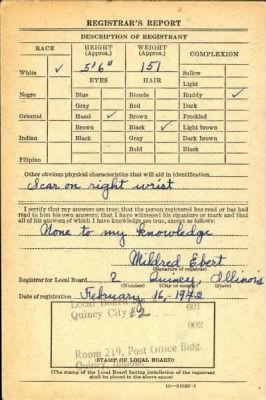 REGISTRAR'S REPORT
DESCRIPTION OF REGISTRANT
RACE HEIGHT (Approx.) WEIGHT (Approx.) COMPLEXION
White ✓ 5' 6" 151 Sallow
EYES HAIR Light
Negro Blue Blonde Ruddy ✓
Gray Red Dark
Oriental Hazel ✓ Brown Freckled
Brown Black ✓ Light brown
Indian Black Gray Dark brown
Bald Black
Filipino
Other obvious physical characteristics that will aid in identification
Scar on right wrist
I certify that my answers are true; that the person registered has read or has had
read to him his own answers; that I have witnessed his signature or mark and that
all of his answers of which I have knowledge are true, except as follows:
None to my knowledge
Mildred Ebert
(Signature of registrar)
Registrar for Local Board 2 Quincy, Illinois
(Number) (City or county) (State)
Date of registration February 16, 1942
Local Board
Quincy City #2 601
002
Room 219, Post Office Bldg.
Quincy, Illinois
(STAMP OF LOCAL BOARD)
(The stamp of the Local Board having jurisdiction of the registrant
shall be placed in the above space)